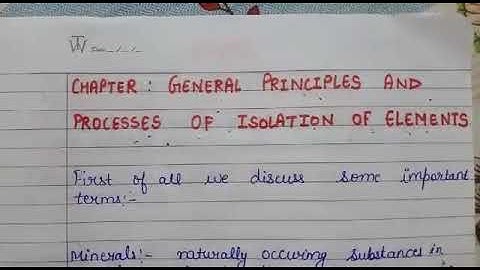 Date __/__/__
CHAPTER : GENERAL PRINCIPLES AND
PROCESSES OF ISOLATION OF ELEMENTS
First of all we discuss some important
terms:-
Minerals:- naturally occuring substances in